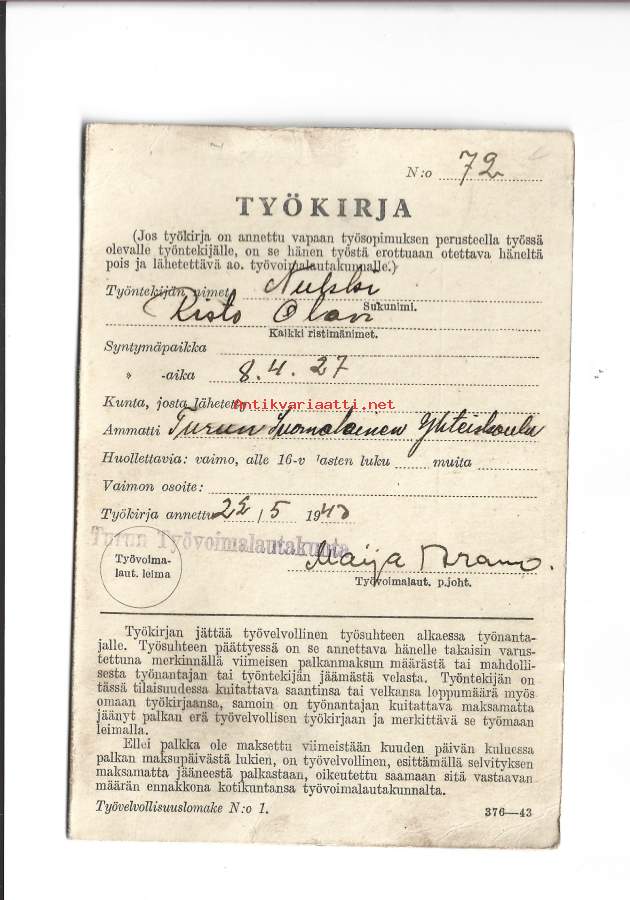 N:o 72
TYÖKIRJA
(Jos työkirja on annettu vapaan työsopimuksen perusteella työssä
olevalle työntekijälle, on se hänen työstä erottuaan otettava häneltä
pois ja lähetettävä ao. työvoimalautakunnalle.)
Työntekijän nimet
Sukunimi.
Risto Olavi
Kaikki ristimänimet.
Syntymäpaikka
» -aika 8.4.27
Kunta, josta lähetetty
Antikvariaatti.net
Ammatti Turun Suomalainen Yhteiskoulu
Huollettavia: vaimo, alle 16-v lasten luku muita
Vaimon osoite:
Työkirja annettu 25 / 5 1943
Turun Työvoimalautakunta
Työvoima-
laut. leima
Maija
Työvoimalaut. p.joht.
Työkirjan jättää työvelvollinen työsuhteen alkaessa työnanta-
jalle. Työsuhteen päättyessä on se annettava hänelle takaisin varus-
tettuna merkinnällä viimeisen palkanmaksun määrästä tai mahdolli-
sesta työnantajan tai työntekijän jäämästä velasta. Työntekijän on
tässä tilaisuudessa kuitattava saantinsa tai velkansa loppumäärä myös
omaan työkirjaansa, samoin on työnantajan kuitattava maksamatta
jäänyt palkan erä työvelvollisen työkirjaan ja merkittävä se työmaan
leimalla.
Ellei palkka ole maksettu viimeistään kuuden päivän kuluessa
palkan maksupäivästä lukien, on työvelvollinen, esittämällä selvityksen
maksamatta jääneestä palkastaan, oikeutettu saamaan sitä vastaavan
määrän ennakkona kotikuntansa työvoimalautakunnalta.
Työvelvollisuuslomake N:o 1.
376—43